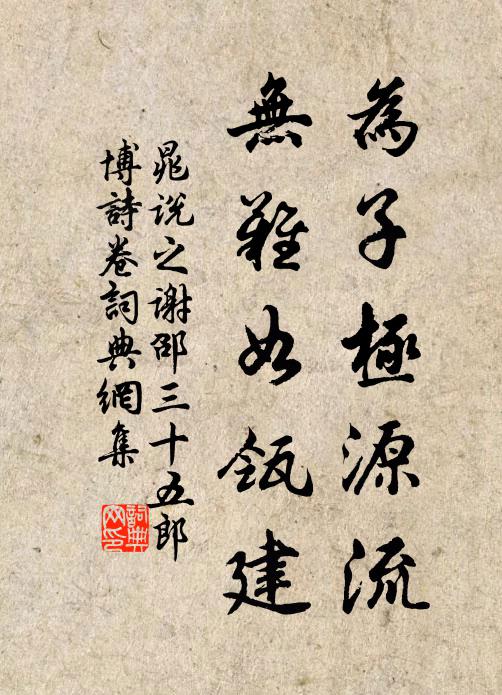 為子極源流
無難如瓴建
晁說之謝邵三十五郎
博詩卷詞典網集
詞典网印